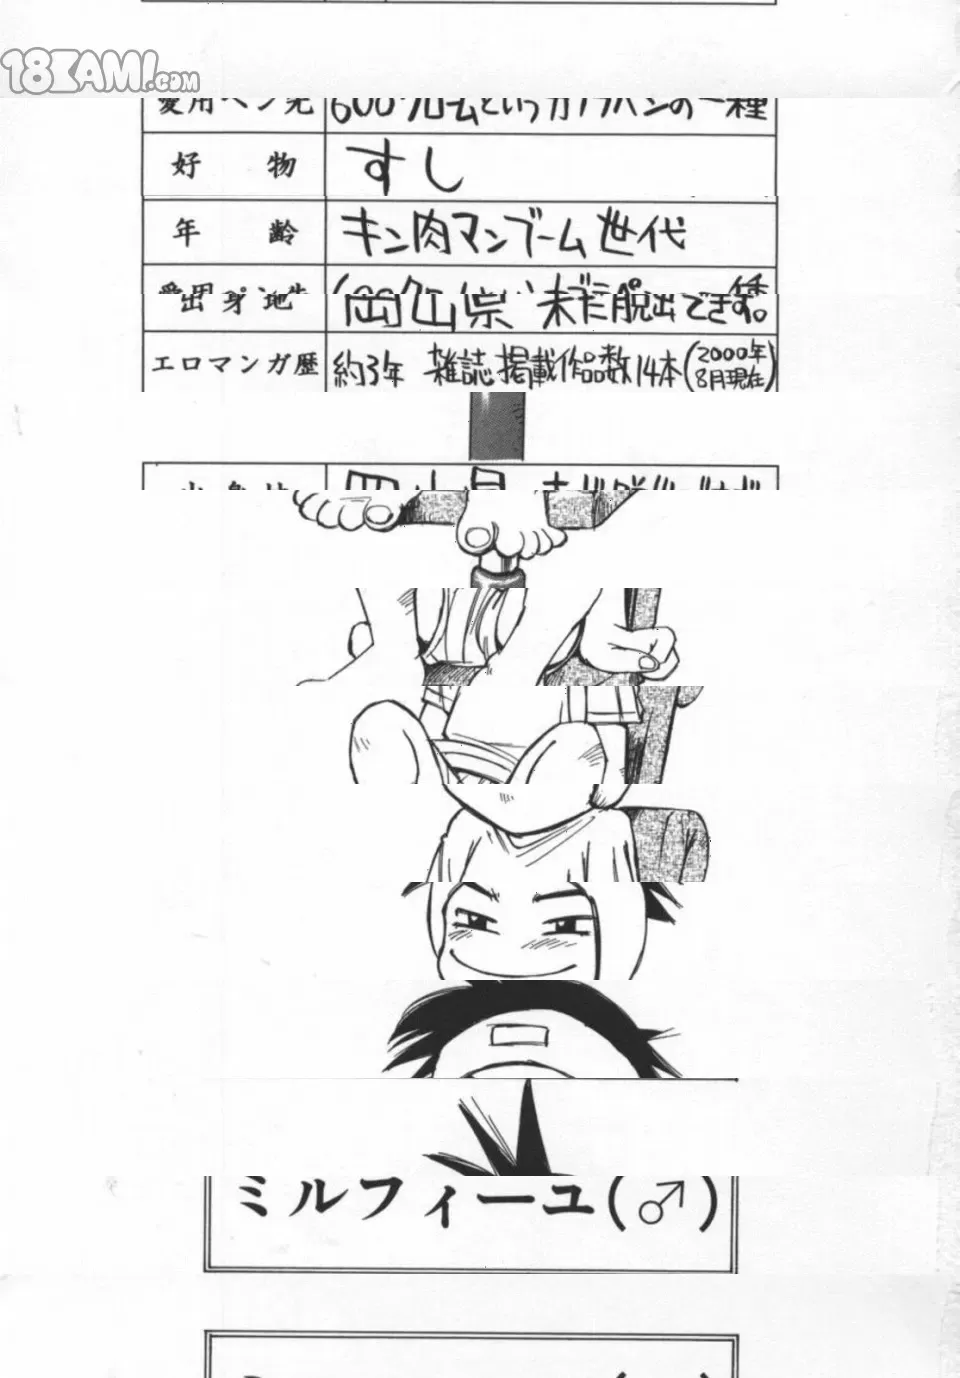 18KAMI.COM
愛用ペン先
好物 すし
年齢 キン肉マンブーム世代
出身地 岡山県 未だ脱出できず。
エロマンガ歴 約3年 雑誌掲載作品数14本(2000年8月現在)
ミルフィーユ(♂)